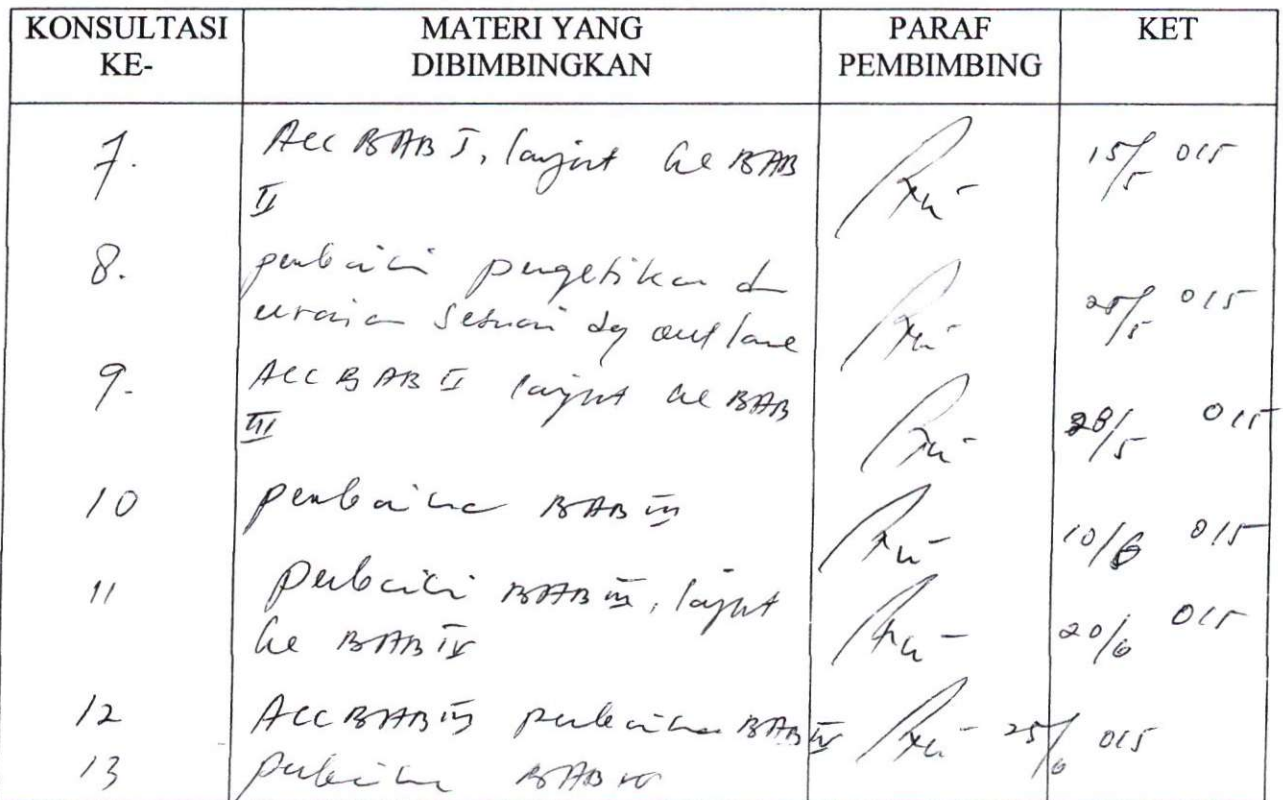 KONSULTASI KE- MATERI YANG DIBIMBINGKAN PARAF PEMBIMBING KET
7. Acc BAB I, lanjut ke BAB 15/5 015
II
8. perbaiki pengetikan dan
uraian sesuai dg outlane /5 015
9. ACC BAB II lanjut ke BAB
III 28/5 015
10 perbaikan BAB III 10/6 015
11 perbaiki BAB III, lanjut
ke BAB IV 20/6 015
12 ACC BAB III perbaikan BAB IV 25/6 015
13 perbaikan BAB IV